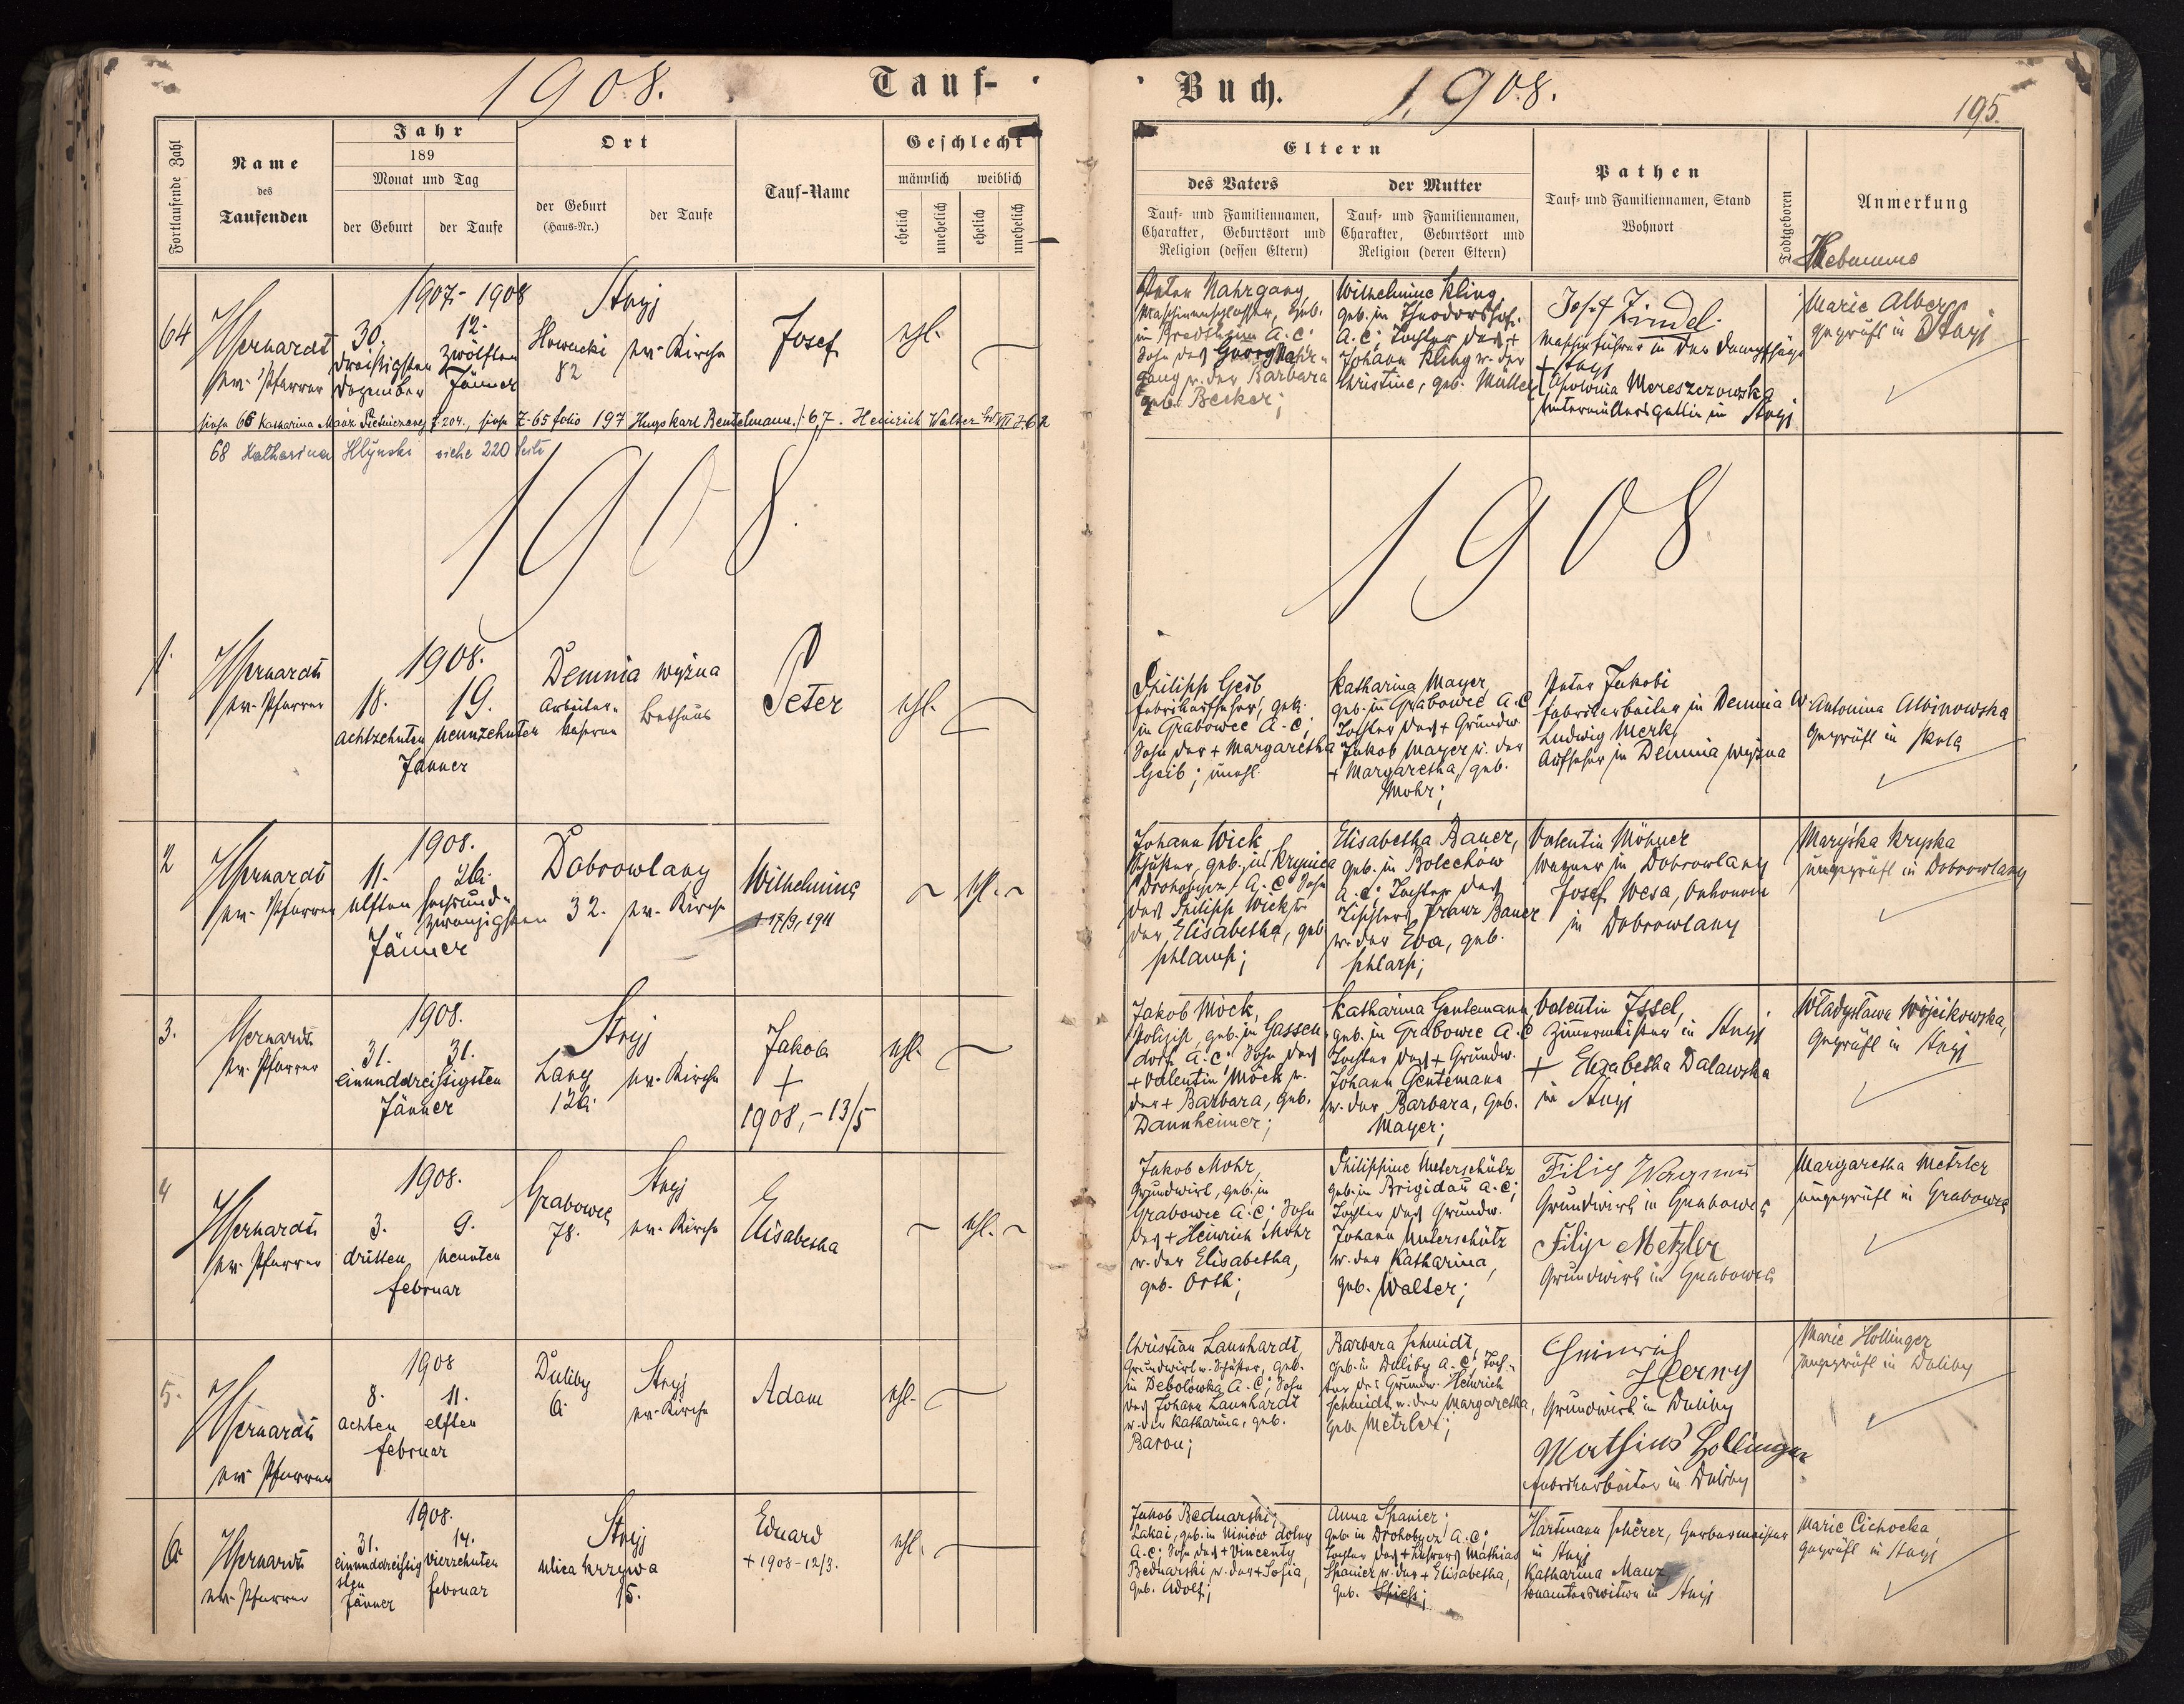 1908. Tauf-
Fortlaufende Zahl
Name
des
Taufenden
Jahr
189
Monat und Tag
der Geburt
der Taufe
Ort
der Geburt
(Haus-Nr.)
der Taufe
Tauf-Name
Geschlecht
männlich weiblich
ehelich
unehelich
ehelich
unehelich
64
ev. Pfarrer
1907-1908
30. 12.
dreißigsten zwölften
Dezember Jänner
Stryj
82
ev. Kirche
Josef
ehl.
siehe 66 Katharina 204., siehe Z-65 folio 197 Hugo Karl 67. Heinrich Walter
68 Katharina Hlynski siehe 220 Seite
1908.
1.
ev. Pfarrer
1908.
18. 19.
achtzehnten neunzehnten
Jänner
Demnia wyżna
Arbeiter-
kaserne
Bethaus
Peter
ehl.
2
ev. Pfarrer
1908.
11. 26.
elften sechsund-
zwanzigsten
Jänner
Dobrowlany
32. ev. Kirche
Wilhelmine
+ 17/9, 1911
ehl.
3.
ev. Pfarrer
1908.
31. 31.
einunddreissigsten
Jänner
Stryj
Lany
126.
ev. Kirche
Jakob
+
1908, - 13/5
ehl.
4
ev. Pfarrer
1908.
3. 9.
dritten neunten
februar
Grabowce
78.
Stryj
ev. Kirche
Elisabetha
ehl.
5.
ev. Pfarrer
1908
8. 11.
achten elften
februar
Duliby
6.
Stryj
ev. Kirche
Adam
ehl.
6.
ev. Pfarrer
1908.
31. 14.
einunddreissig vierzehnten
sten
Jänner februar
Stryj
ulica krzywa
15.
Eduard
+ 1908 - 12/3.
ehl.
Buch. 1908.
195.
Eltern
des Vaters
Tauf- und Familiennamen,
Charakter, Geburtsort und
Religion (dessen Eltern)
der Mutter
Tauf- und Familiennamen,
Charakter, Geburtsort und
Religion (deren Eltern)
Pathen
Tauf- und Familiennamen, Stand
Wohnort
Todtgeboren
Anmerkung
Hebamme
Peter Nahrgang
Maschinenschlosser, geb.
in Bredtheim A. C.
Sohn des Georg Nahr-
gang u. der Barbara
geb. Becker;
Wilhelmine Kling,
geb. in Theodorshof
A. C; Tochter des +
Johann Kling u. der
Christine, geb. Müller
Josef Zindel.
Maschinführer in der Dampfsäge
Stryj
Apolonia Mereszczowska
in Stryj
Marie Albers
geprüft in Stryj
1908.
Philipp Geib
Fabriksaufseher, geb.
in Grabowce A. C;
Sohn der + Margaretha
Geib; unehl.
Katharina Mayer
geb. in Grabowce A. C
Tochter des + Grundw.
Jakob Mayer u. der
+ Margaretha, geb.
Mohr;
Peter Jakobi
fabriksarbeiter in Demnia W.
Ludwig Merk,
Aufseher in Demnia wyżna
Antonina Albinowska
geprüft in Skole
Johann Wick
Schuster, geb. in Krynica
Drohobycz A. C. Sohn
des Philipp Wick u.
der Elisabetha, geb.
Schlamp;
Elisabetha Bauer,
geb. in Bolechow
A. C; Tochter des
Tischlers Franz Bauer
u. der Eva, geb.
Schlarp;
Valentin Möhner
Wagner in Dobrowlany
Josef Wesa, Oekonom
in Dobrowlany
Maryśka Kryska
ungeprüft in Dobrowlany
Jakob Möck,
Polizist, geb. in Gassen-
dorf, A. C; Sohn des
+ Valentin Möck u.
der + Barbara, geb.
Dannheimer;
Katharina Gentemann,
geb. in Grabowce A. C
Tochter des + Grundw.
Johann Gentemann
u. der Barbara, geb.
Mayer;
Valentin Issel,
Zimmermeister in Stryj
+ Elzabetha Dalawska
in Stryj
Władysława Wójcikowska,
geprüft in Stryj
Jakob Mohr,
Grundwirt, geb. in
Grabowce A. C; Sohn
des + Heinrich Mohr
u. der Elisabetha,
geb. Orth;
Philippine Unterschütz
geb. in Brigidau A. C;
Tochter des Grundw.
Johann Unterschütz
u. der Katharina,
geb. Walter;
Filip Wagner
Grundwirt in Grabowce
Filip Metzler
Grundwirt in Grabowce
Margaretha Metzler
ungeprüft in Grabowce
Christian Launhardt,
Grundwirt u. Schuster, geb.
in Debolowka A. C; Sohn
des Johann Launhardt
u. der Katharina, geb.
Baron;
Barbara Schmidt,
geb. in Duliby A. C; Toch-
ter des Grundw. Heinrich
Schmidt u. der Margaretha,
geb. Metzler;
Heinrich
Grundwirt in Duliby
Mathias Hollinger
Fabriksarbeiter in Duliby
Marie Hollinger
ungeprüft in Duliby
Jakob Bednarski;
Lakai, geb. in Niniow dolny
A. C; Sohn des + Vincenty
Bednarski u. der + Sofia,
geb. Adolf;
Anna Spanier;
geb. in Drohobycz A. C;
Tochter des + Lehrers Mathias
Spanier u. der + Elisabetha,
geb. Spiess;
Hartmann Scherer, Gerbermeister
in Stryj
Katharina Maur
Beamtenswitwe in Stryj
Marie Cichocka,
geprüft in Stryj